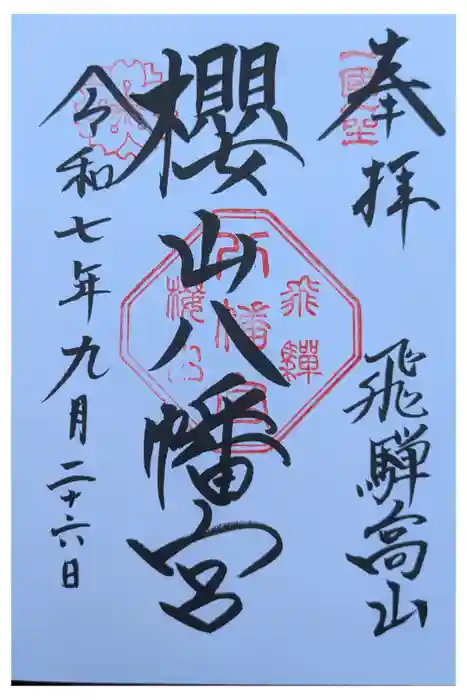 奉拝
飛騨高山
櫻山八幡宮
令和七年九月二十六日
飛驒
八幡宮
櫻山